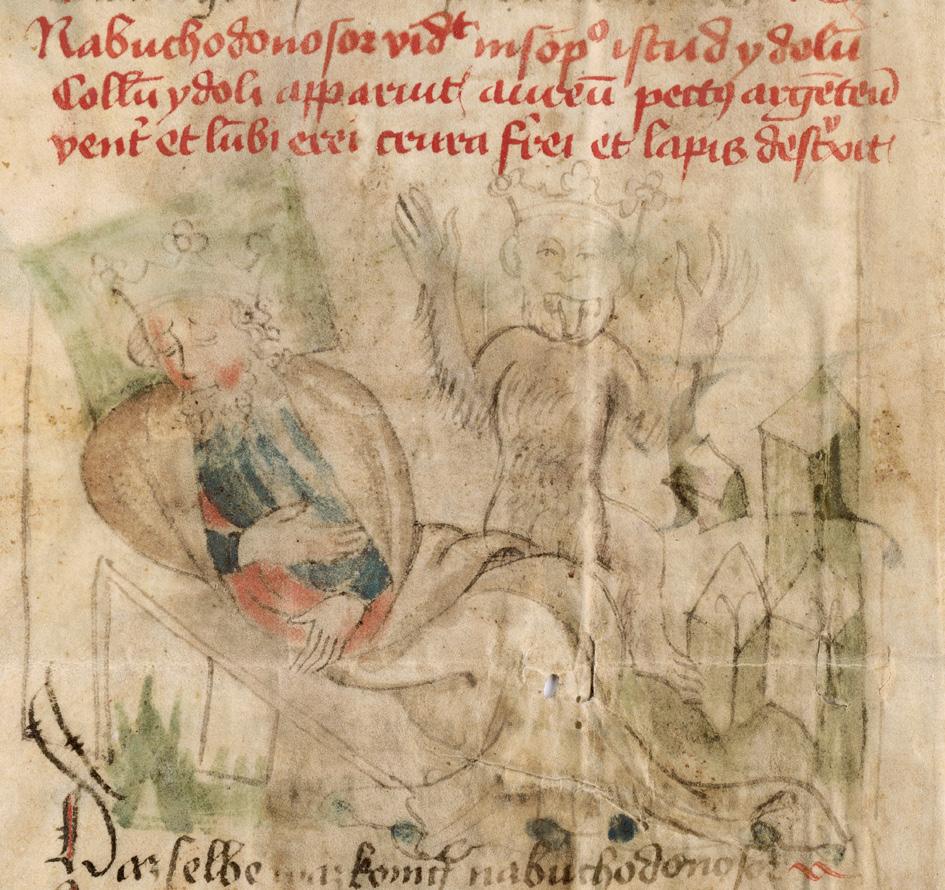 Nabuchodonosor vidt in sōpo istud ydolū
Collū ydoli apparuit aureū pectꝰ argēteū
ventr et lūbi erei crura frei et lapis
Darselbe konig nabuchodonosor